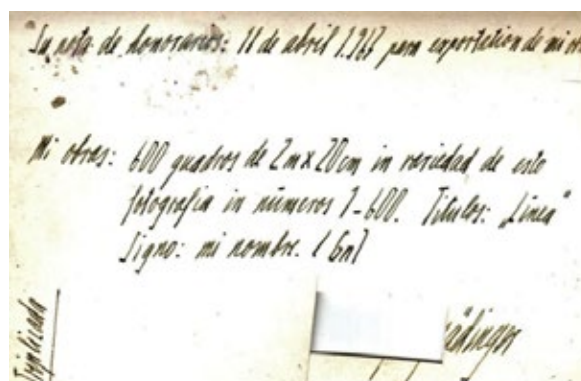 Su nota de honorarios: 11 de abril 1967 para exportation de mi
Mi obras: 600 quadros de 2m x 20cm in variedad de este
fotografia in números 1-600. Titulos: „Linea"
Signo: mi nombre.
Triplicada